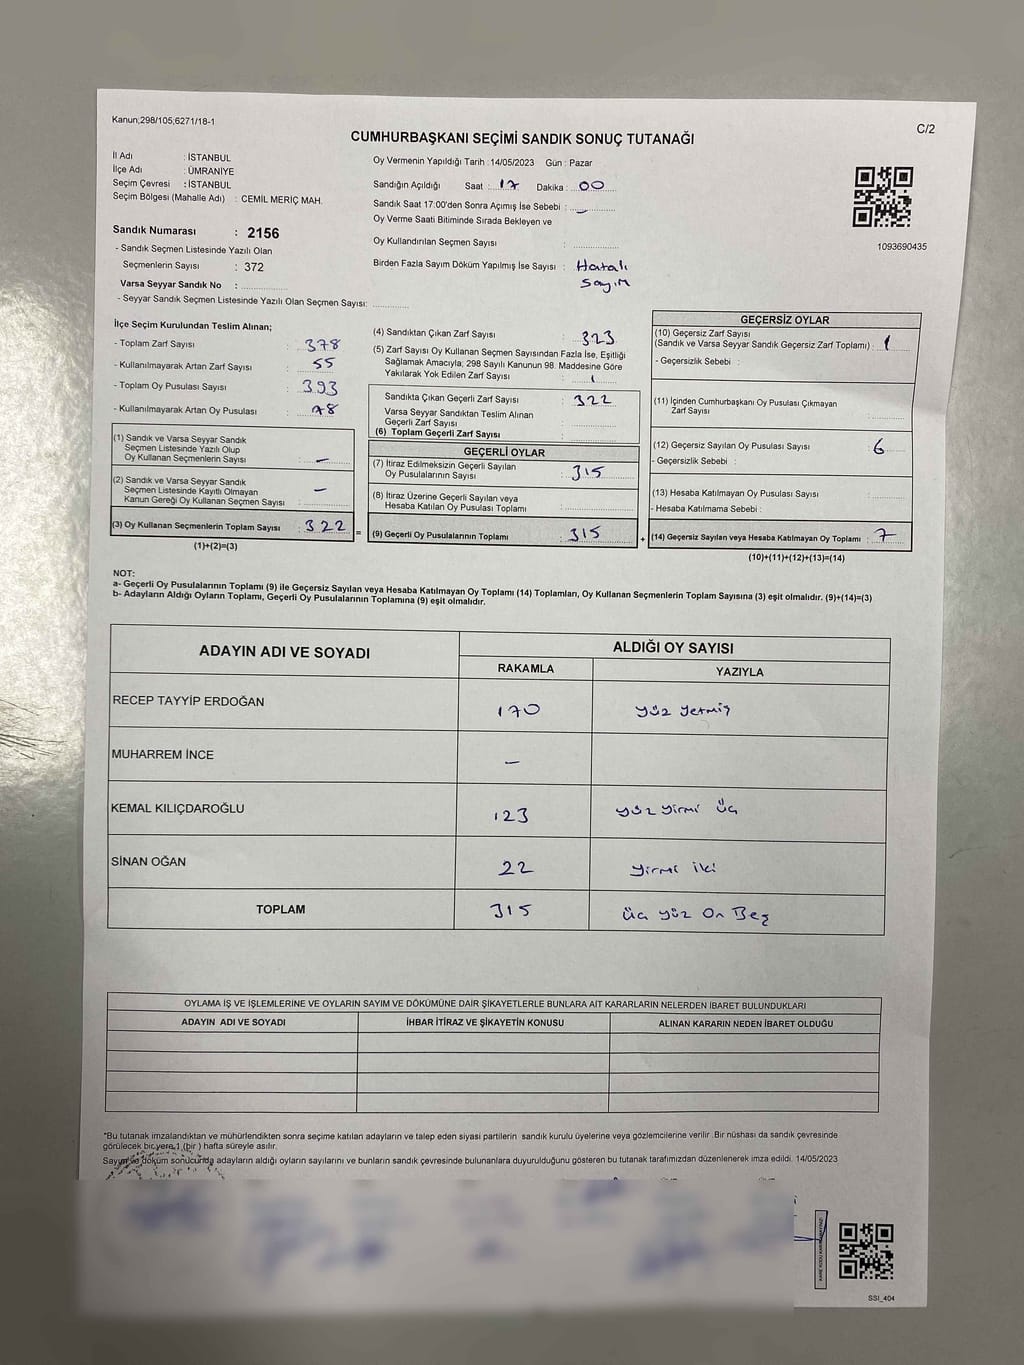 Kanun;298/105,6271/18-1
C/2
CUMHURBAŞKANI SEÇİMİ SANDIK SONUÇ TUTANAĞI
İl Adı : İSTANBUL
İlçe Adı : ÜMRANİYE
Seçim Çevresi : İSTANBUL
Seçim Bölgesi (Mahalle Adı) : CEMİL MERİÇ MAH.
Sandık Numarası : 2156
- Sandık Seçmen Listesinde Yazılı Olan
Seçmenlerin Sayısı : 372
Varsa Seyyar Sandık No :
- Seyyar Sandık Seçmen Listesinde Yazılı Olan Seçmen Sayısı:
Oy Vermenin Yapıldığı Tarih :14/05/2023 Gün : Pazar
Sandığın Açıldığı Saat : 17 Dakika : 00
Sandık Saat 17:00'den Sonra Açımış İse Sebebi : -
Oy Verme Saati Bitiminde Sırada Bekleyen ve
Oy Kullandırılan Seçmen Sayısı :
Birden Fazla Sayım Döküm Yapılmış İse Sayısı : Hatalı
Sayım
1093690435
İlçe Seçim Kurulundan Teslim Alınan;
- Toplam Zarf Sayısı : 378
- Kullanılmayarak Artan Zarf Sayısı : 55
- Toplam Oy Pusulası Sayısı : 393
- Kullanılmayarak Artan Oy Pusulası : 78
(1) Sandık ve Varsa Seyyar Sandık
Seçmen Listesinde Yazılı Olup
Oy Kullanan Seçmenlerin Sayısı : -
(2) Sandık ve Varsa Seyyar Sandık
Seçmen Listesinde Kayıtlı Olmayan
Kanun Gereği Oy Kullanan Seçmen Sayısı : -
(3) Oy Kullanan Seçmenlerin Toplam Sayısı : 322
(1)+(2)=(3)
(4) Sandıktan Çıkan Zarf Sayısı : 323
(5) Zarf Sayısı Oy Kullanan Seçmen Sayısından Fazla İse, Eşitliği
Sağlamak Amacıyla; 298 Sayılı Kanunun 98. Maddesine Göre
Yakılarak Yok Edilen Zarf Sayısı : 1
Sandıkta Çıkan Geçerli Zarf Sayısı : 322
Varsa Seyyar Sandıktan Teslim Alınan
Geçerli Zarf Sayısı :
(6) Toplam Geçerli Zarf Sayısı :
GEÇERLİ OYLAR
(7) İtiraz Edilmeksizin Geçerli Sayılan
Oy Pusulalarının Sayısı : 315
(8) İtiraz Üzerine Geçerli Sayılan veya
Hesaba Katılan Oy Pusulası Toplamı :
= (9) Geçerli Oy Pusulalarının Toplamı : 315 +
GEÇERSİZ OYLAR
(10) Geçersiz Zarf Sayısı
(Sandık ve Varsa Seyyar Sandık Geçersiz Zarf Toplamı) : 1
- Geçersizlik Sebebi :
(11) İçinden Cumhurbaşkanı Oy Pusulası Çıkmayan
Zarf Sayısı :
(12) Geçersiz Sayılan Oy Pusulası Sayısı : 6
- Geçersizlik Sebebi :
(13) Hesaba Katılmayan Oy Pusulası Sayısı :
- Hesaba Katılmama Sebebi :
(14) Geçersiz Sayılan veya Hesaba Katılmayan Oy Toplamı : 7
(10)+(11)+(12)+(13)=(14)
NOT:
a- Geçerli Oy Pusulalarının Toplamı (9) ile Geçersiz Sayılan veya Hesaba Katılmayan Oy Toplamı (14) Toplamları, Oy Kullanan Seçmenlerin Toplam Sayısına (3) eşit olmalıdır. (9)+(14)=(3)
b- Adayların Aldığı Oyların Toplamı, Geçerli Oy Pusulalarının Toplamına (9) eşit olmalıdır.
ADAYIN ADI VE SOYADI ALDIĞI OY SAYISI
RAKAMLA YAZIYLA
RECEP TAYYİP ERDOĞAN 170 yüz yetmiş
MUHARREM İNCE -
KEMAL KILIÇDAROĞLU 123 yüz yirmi üç
SİNAN OĞAN 22 yirmi iki
TOPLAM 315 üç yüz On Beş
OYLAMA İŞ VE İŞLEMLERİNE VE OYLARIN SAYIM VE DÖKÜMÜNE DAİR ŞİKAYETLERLE BUNLARA AİT KARARLARIN NELERDEN İBARET BULUNDUKLARI
ADAYIN ADI VE SOYADI İHBAR İTİRAZ VE ŞİKAYETİN KONUSU ALINAN KARARIN NEDEN İBARET OLDUĞU
*Bu tutanak imzalandıktan ve mühürlendikten sonra seçime katılan adayların ve talep eden siyasi partilerin sandık kurulu üyelerine veya gözlemcilerine verilir .Bir nüshası da sandık çevresinde
görülecek bir yere 1 (bir ) hafta süreyle asılır.
Sayım ve döküm sonucunda adayların aldığı oyların sayılarını ve bunların sandık çevresinde bulunanlara duyurulduğunu gösteren bu tutanak tarafımızdan düzenlenerek imza edildi. 14/05/2023
SSI_404